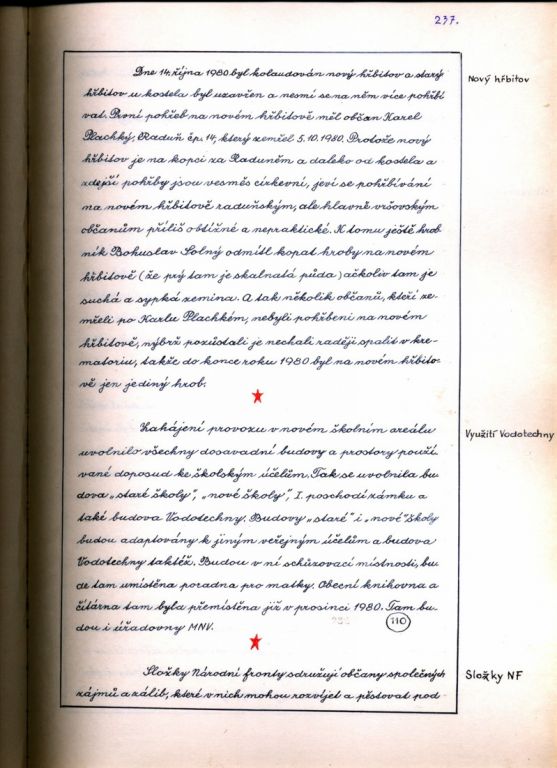 237.
Dne 14. října 1980 byl kolaudován nový hřbitov a starý
Nový hřbitov
hřbitov u kostela byl uzavřen a nesmí se na něm více pohřbí
vat. První pohřeb na novém hřbitově měl občan Karel
Plachký, Raduň čp. 14, který zemřel 5.10.1980. Protože nový
hřbitov je na kopci za Raduněm a daleko od kostela a
zdejší pohřby jsou vesměs církevní, jeví se pohřbívání
na novém hřbitově raduňským, ale hlavně vršovským
občanům příliš obtížné a nepraktické. K tomu ještě hrob
ník Bohuslav Solný odmítl kopat hroby na novém
hřbitově (že prý tam je skalnatá půda) ačkoliv tam je
suchá a sypká zemina. A tak několik občanů, kteří ze-
mřeli po Karlu Plachkém, nebyli pohřbeni na novém
hřbitově, nýbrž pozůstalí je nechali raději spálit v kre-
matoriu, takže do konce roku 1980 byl na novém hřbito-
vě jen jediný hrob.
Zahájení provozu v novém školním areálu
Využití Vodotechny
uvolnilo všechny dosavadní budovy a prostory použí
vané doposud ke školským účelům. Tak se uvolnila bu
dova „staré školy", „nové školy", I. poschodí zámku a
také budova Vodotechny. Budovy „staré" i „nové" školy
budou adaptovány k jiným veřejným účelům a budova
Vodotechny taktéž. Budou v ní schůzovací místnosti, bu
de tam umístěna poradna pro matky. Obecní knihovna a
čítárna tam byla přemístěna již v prosinci 1980. Tam bu-
dou i úřadovny MNV.
110
Složky Národní fronty sdružují občany společných
Složky NF
zájmů a zálib, které v nich mohou rozvíjet a pěstovat pod